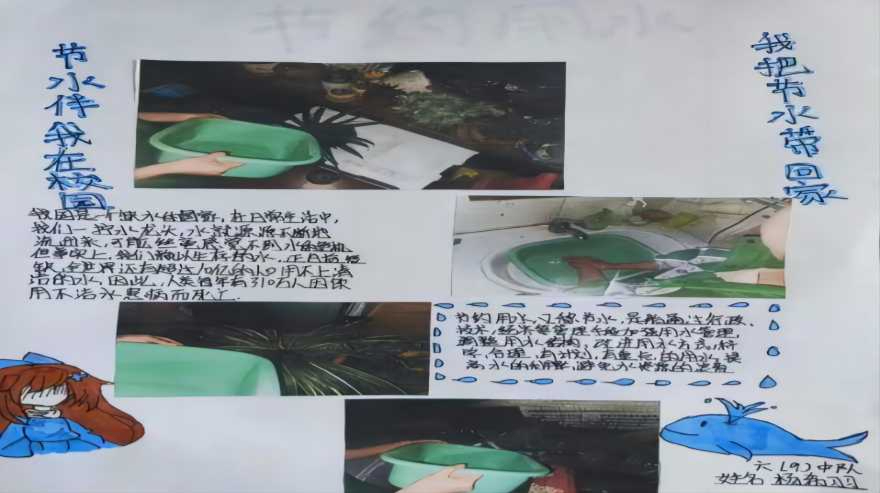 节水伴我在校园
我把节水带回家
我国是一个缺水的国家,在日常生活中,
我们一拧水龙头,水就源源不断地
流出来,可能丝毫感受不到水的危机
但事实上,我们赖以生存的水,正日益短
缺,全世界还有超过10亿的人口用不上清
洁的水,因此,人类每年有310万人因饮
用不洁水患病而死亡.
节约用水,又称节水,是指通过行政、
技术,经济等管理手段加强用水管理,
调整用水结构,改进用水方式,科
学,合理,有计划,有重点,的用水,提
高水的利用率,避免水资源的浪费
六(9)中队
姓名